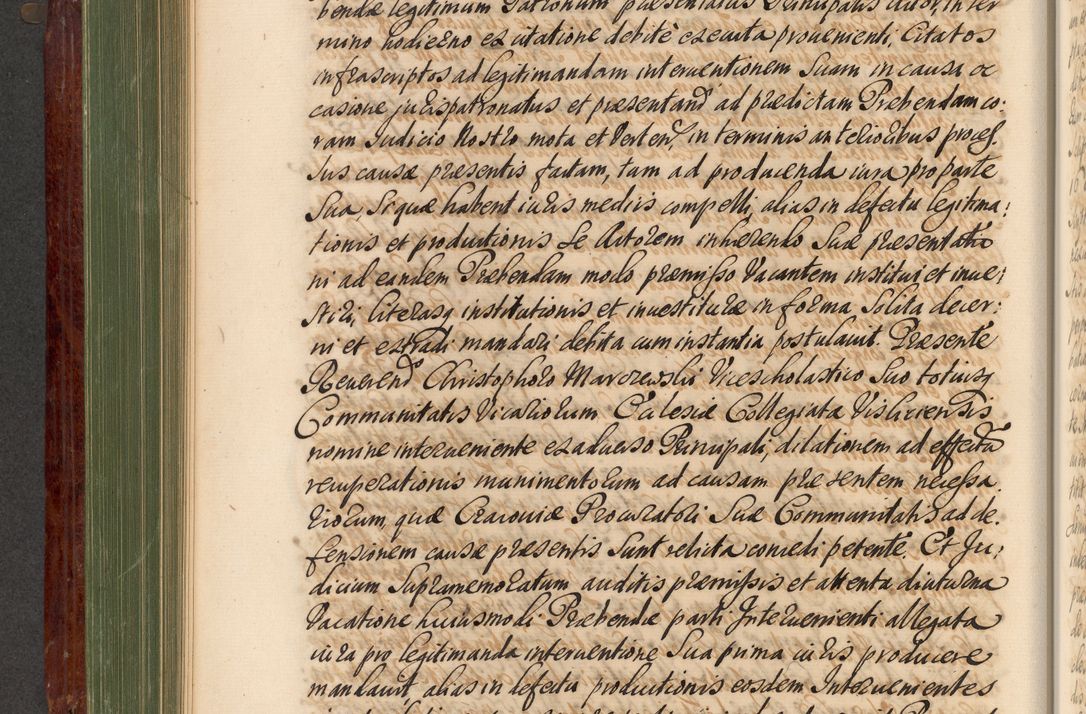 bendæ legitimum Patronum præsentatus Principalis Actor, in ter
mino hodierno ex citatione debitè executa provenienti, Citatos
infrascriptos ad legitimandam interventionem Suam in causa oc
casione jurispatronatus et præsentand ad prædictam Præbendam co:
ram Judicio Nostro mota et Verten, in terminis anterioribus proces
sus causæ præsentis factam, tam ad producenda iura pro parte
Sua, Si quæ habent iuris mediis compelli, alias in defectu legitima:
tionis et productionis Se Actorem inhærendo Suæ præsentatio
ni ad eandem Præbendam modo præmisso Vacantem institui et inve:
stiri, literasq institutionis et investituræ in forma Solita decer:
ni et extradi mandari debita cum instantia postulavit. Præsente
Reverend Christophoro Marczewski Vicescholastico Suo totiusq
Communitatis Vicariorum Ecclesiæ Collegiatæ Visliciensis
nomine interveniente ex adverso Principali, dilationem ad effectũ
recuperationis munimentorum ad causam præsentem necessa
riorum, quæ Cracoviæ Procuratori Suæ Communitatis ad de.
fensionem causæ præsentis Sunt relicta concedi petente. Et Ju:
dicium Supramemoratum auditis præmissis et attenta diuturna
Vacatione huiusmodi Præbendæ parti Intervenienti allegata
iura pro legitimanda interventione Sua prima iuris producere
mandavit, alias in defectu productionis eosdem Intervenientes